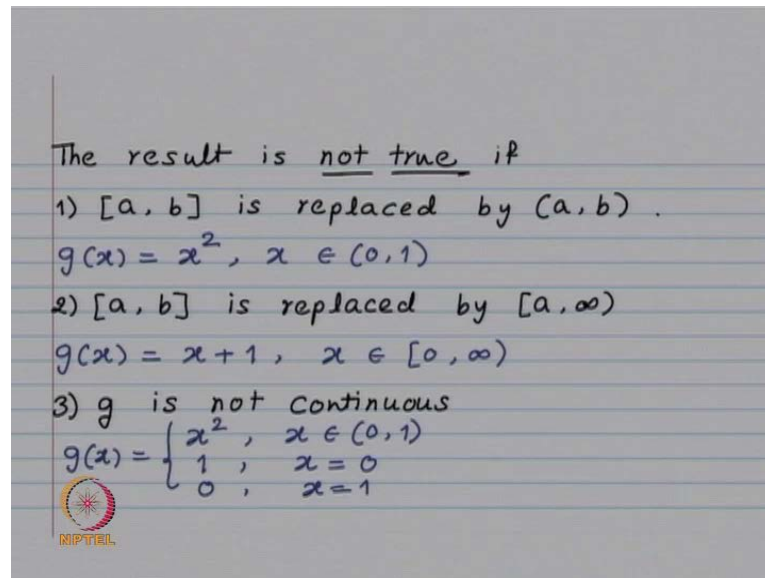 The result is not true if
1) [a, b] is replaced by (a, b) .
g(x) = x², x ∈ (0, 1)
2) [a, b] is replaced by [a, ∞)
g(x) = x + 1 , x ∈ [0, ∞)
3) g is not continuous
g(x) = { x² , x ∈ (0, 1)
1 , x = 0
0 , x = 1
NPTEL